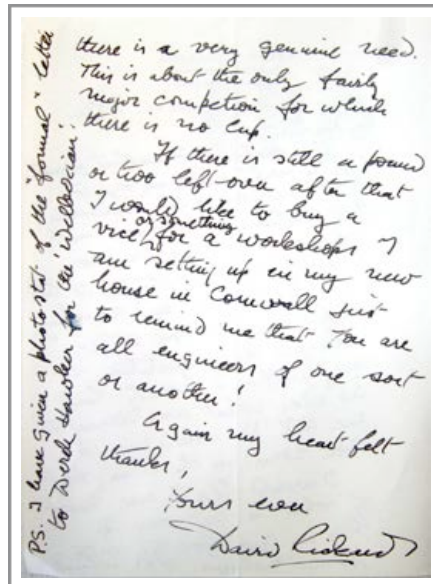 there is a very genuine need.
This is about the only fairly
major competion for which
there is no cup.
If there is still a pound
or two left over after that
I would like to buy a
vice or something for a workshops I
am setting up in my new
house in Cornwall just
to remind me that you are
all engineers of one sort
or another!
Again my heart felt
thanks,
Yours ever
David
P.S. I have given a photostat of the "formal" letter
to Derek for the 'Wellesian'.